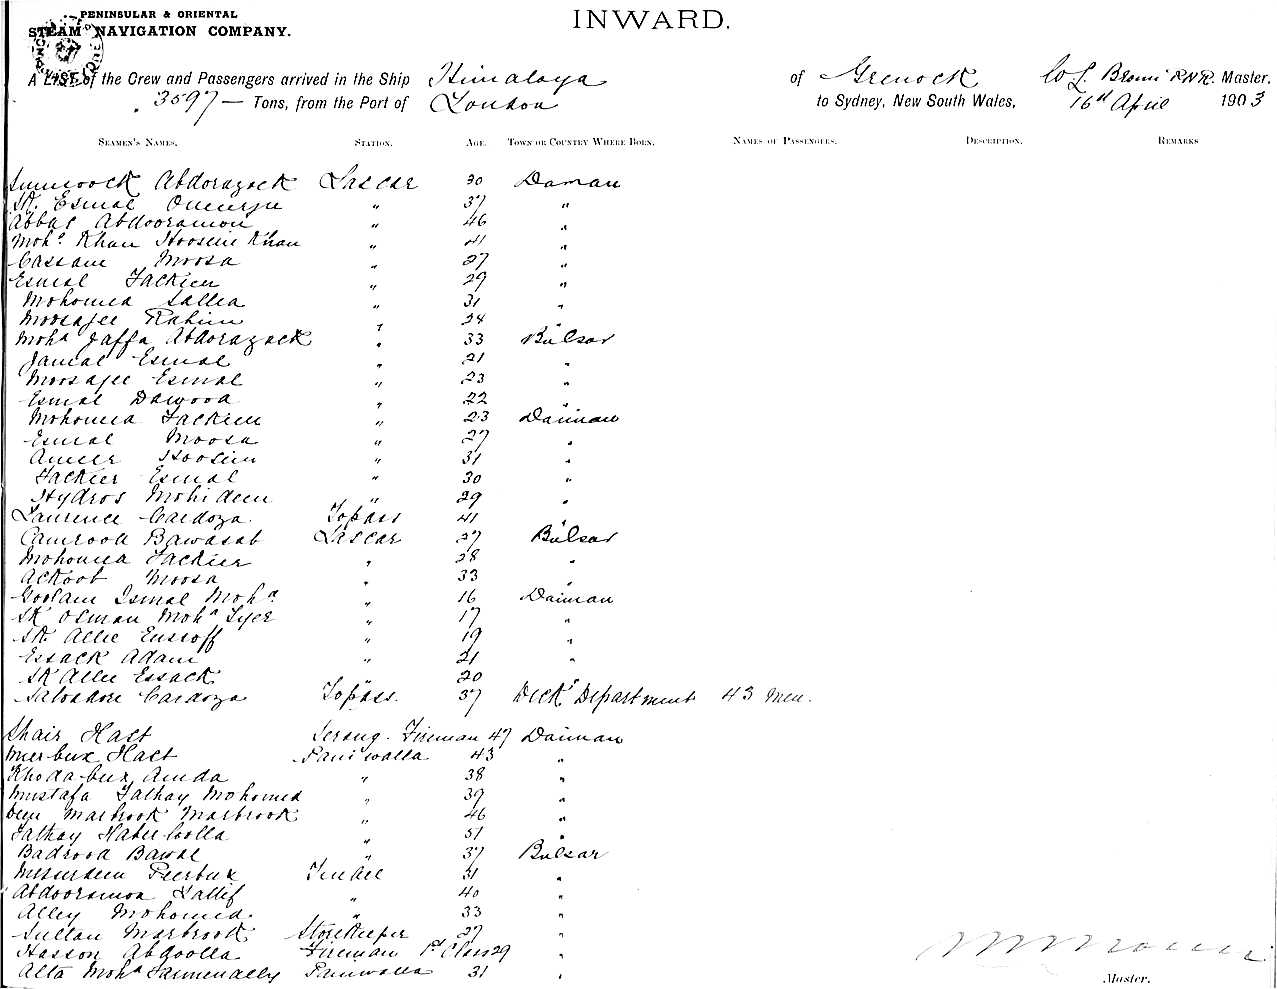 PENINSULAR & ORIENTAL
STEAM NAVIGATION COMPANY.
INWARD.
A LIST of the Crew and Passengers arrived in the Ship Himalaya of Greenock Master.
3597 — Tons, from the Port of London to Sydney, New South Wales, 16th April 1903
SEAMEN'S NAMES. STATION. AGE. TOWN OR COUNTRY WHERE BORN. NAMES OF PASSENGERS. DESCRIPTION. REMARKS
Abdorazack Lascar 30 Daman
Sk. Esmal " 37 "
Abbas Abdooramon " 46 "
Mohd. Khan Hoosein Khan " 41 "
Cassam Moosa " 27 "
Esmal Fackier " 29 "
Mohomed Sallea " 31 "
Moosajee Rahim " 24
Mohd Jaffa Abdorazack " 33 Bulsar
Jamal Esmal " 21 "
Moosajee Esmal " 23 "
Esmal Dawood " 22 "
Mohomed Fackier " 23 Daman
Esmal Moosa " 27 "
Ameer Hoosein " 31 "
Fackier Esmal " 30 "
Hydros Mohideen " 29 "
Laurence Cardoza. Topass 41 "
Camrood Bawasab Lascar 27 Bulsar
Mohomed Fackier " 28 "
Ackoob Moosa " 33 "
Goolam Ismal Mohd " 16 Daman
Sk Osman Mohd " 17 "
Sk. Allie Eusoff " 19 "
Essack Adam " 21 "
Sk Allie Essack " 20 "
Salvadore Cardoza Topass. 37 Deck Department 43 men.
Serang. Fireman 47 Daman
Paniwalla 43 "
Khodabux " 38 "
Mustafa Mohomed " 39 "
Marbrook Marbrook " 46 "
" 51 "
Badrood Bawal " 37 Bulsar
Peerbux Tindel 31 "
Abdooramon Lallif " 40 "
Alley Mohomed. " 33 "
Sultan Marbrook Storekeeper 27 "
Hasson Abdoolla Fireman 1st Class 29 "
Alta Mohd Paniwalla 31 "
Master.